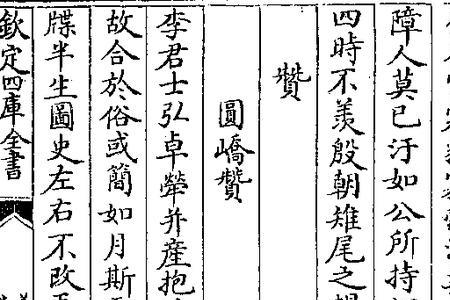 障人莫已汙如公所持
四時不羨殷朝雉尾之
賛
圓嶠賛
李君士弘卓犖并産抱
故合於俗或簡如月斯
牒半生圖史左右不改
欽定四庫全書